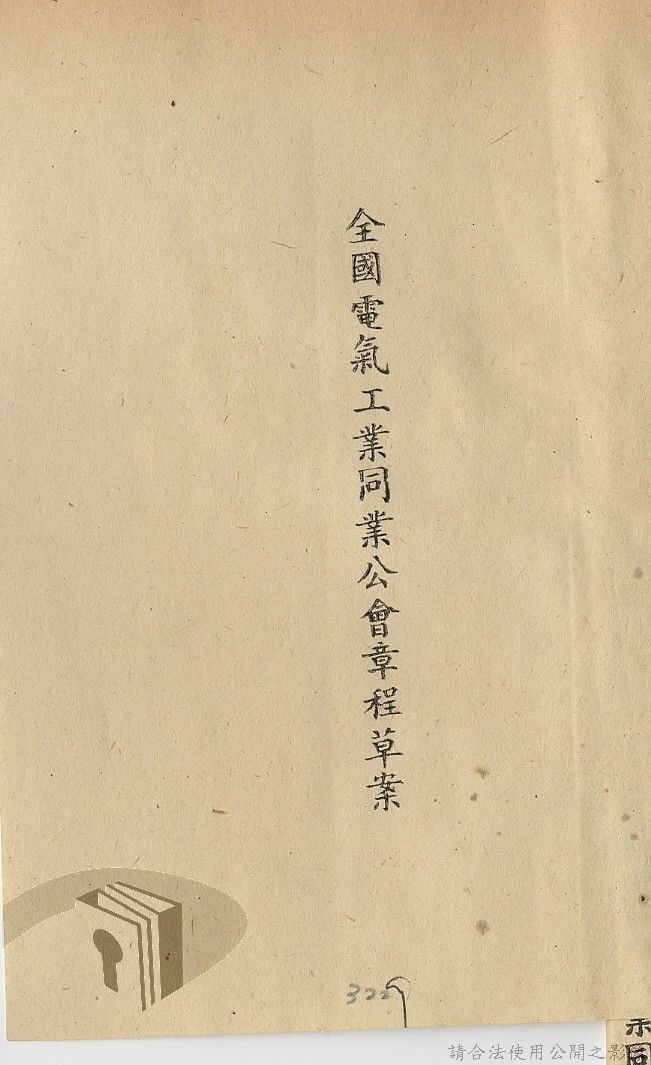 全國電氣工業同業公會章程草案
請合法使用公開之影